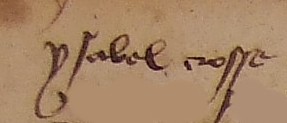 ysabel crosse